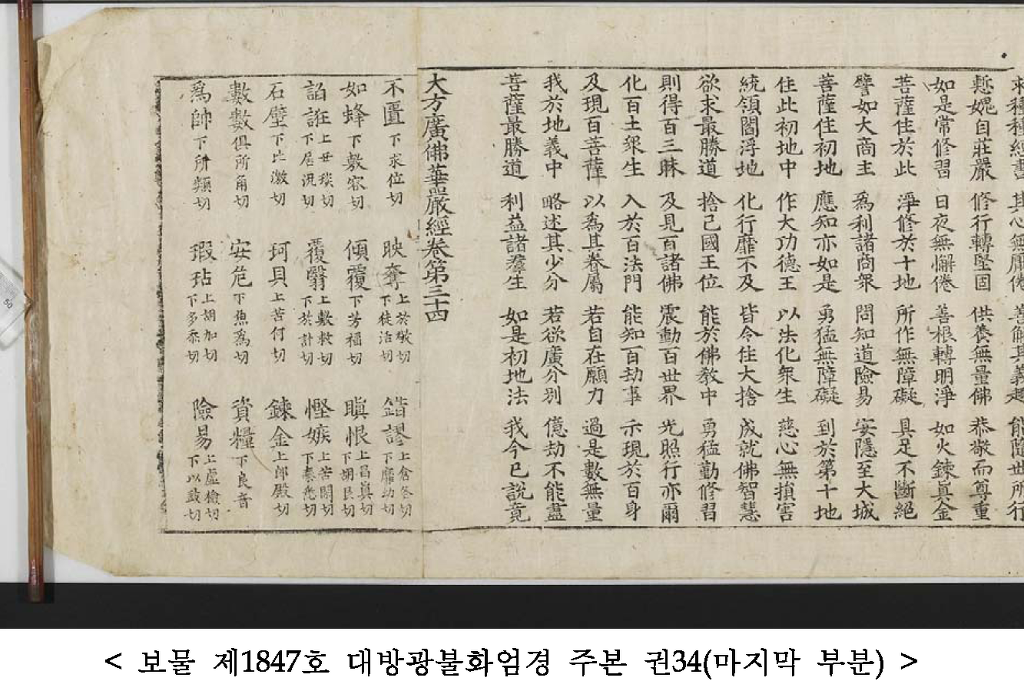 求種種經書 其心無厭倦 善解其義趣 能隨世所行
慙愧自莊嚴 修行轉堅固 供養無量佛 恭敬而尊重
如是常修習 日夜無懈倦 善根轉明淨 如火鍊眞金
菩薩住於此 淨修於十地 所作無障礙 具足不斷絕
譬如大商主 爲利諸商衆 問知道險易 安隱至大城
菩薩住初地 應知亦如是 勇猛無障礙 到於第十地
住此初地中 作大功德王 以法化衆生 慈心無損害
統領閻浮地 化行靡不及 皆令住大捨 成就佛智慧
欲求最勝道 捨己國王位 能於佛教中 勇猛勤修習
則得百三昧 及見百諸佛 震動百世界 光照行亦爾
化百土衆生 入於百法門 能知百劫事 示現於百身
及現百菩薩 以爲其眷屬 若自在願力 過是數無量
我於地義中 略述其少分 若欲廣分別 億劫不能盡
菩薩最勝道 利益諸羣生 如是初地法 我今已說竟
大方廣佛華嚴經卷第三十四
不匱下求位切 映奪上於敬切下徒活切 錯謬上倉各切下靡幼切
如蜂下敷容切 傾覆下芳福切 瞋恨上昌眞切下胡艮切
諂誑上丑琰切下居況切 覆翳上敷救切下於計切 慳嫉上苦閑切下秦悉切
石壁下北激切 珂貝上苦何切 鍊金上郎殿切
數數俱所角切 安危下魚爲切 資糧下良音
爲帥下所類切 瑕玷上胡加切下多忝切 險易上虛檢切下以豉切
< 보물 제1847호 대방광불화엄경 주본 권34(마지막 부분) >